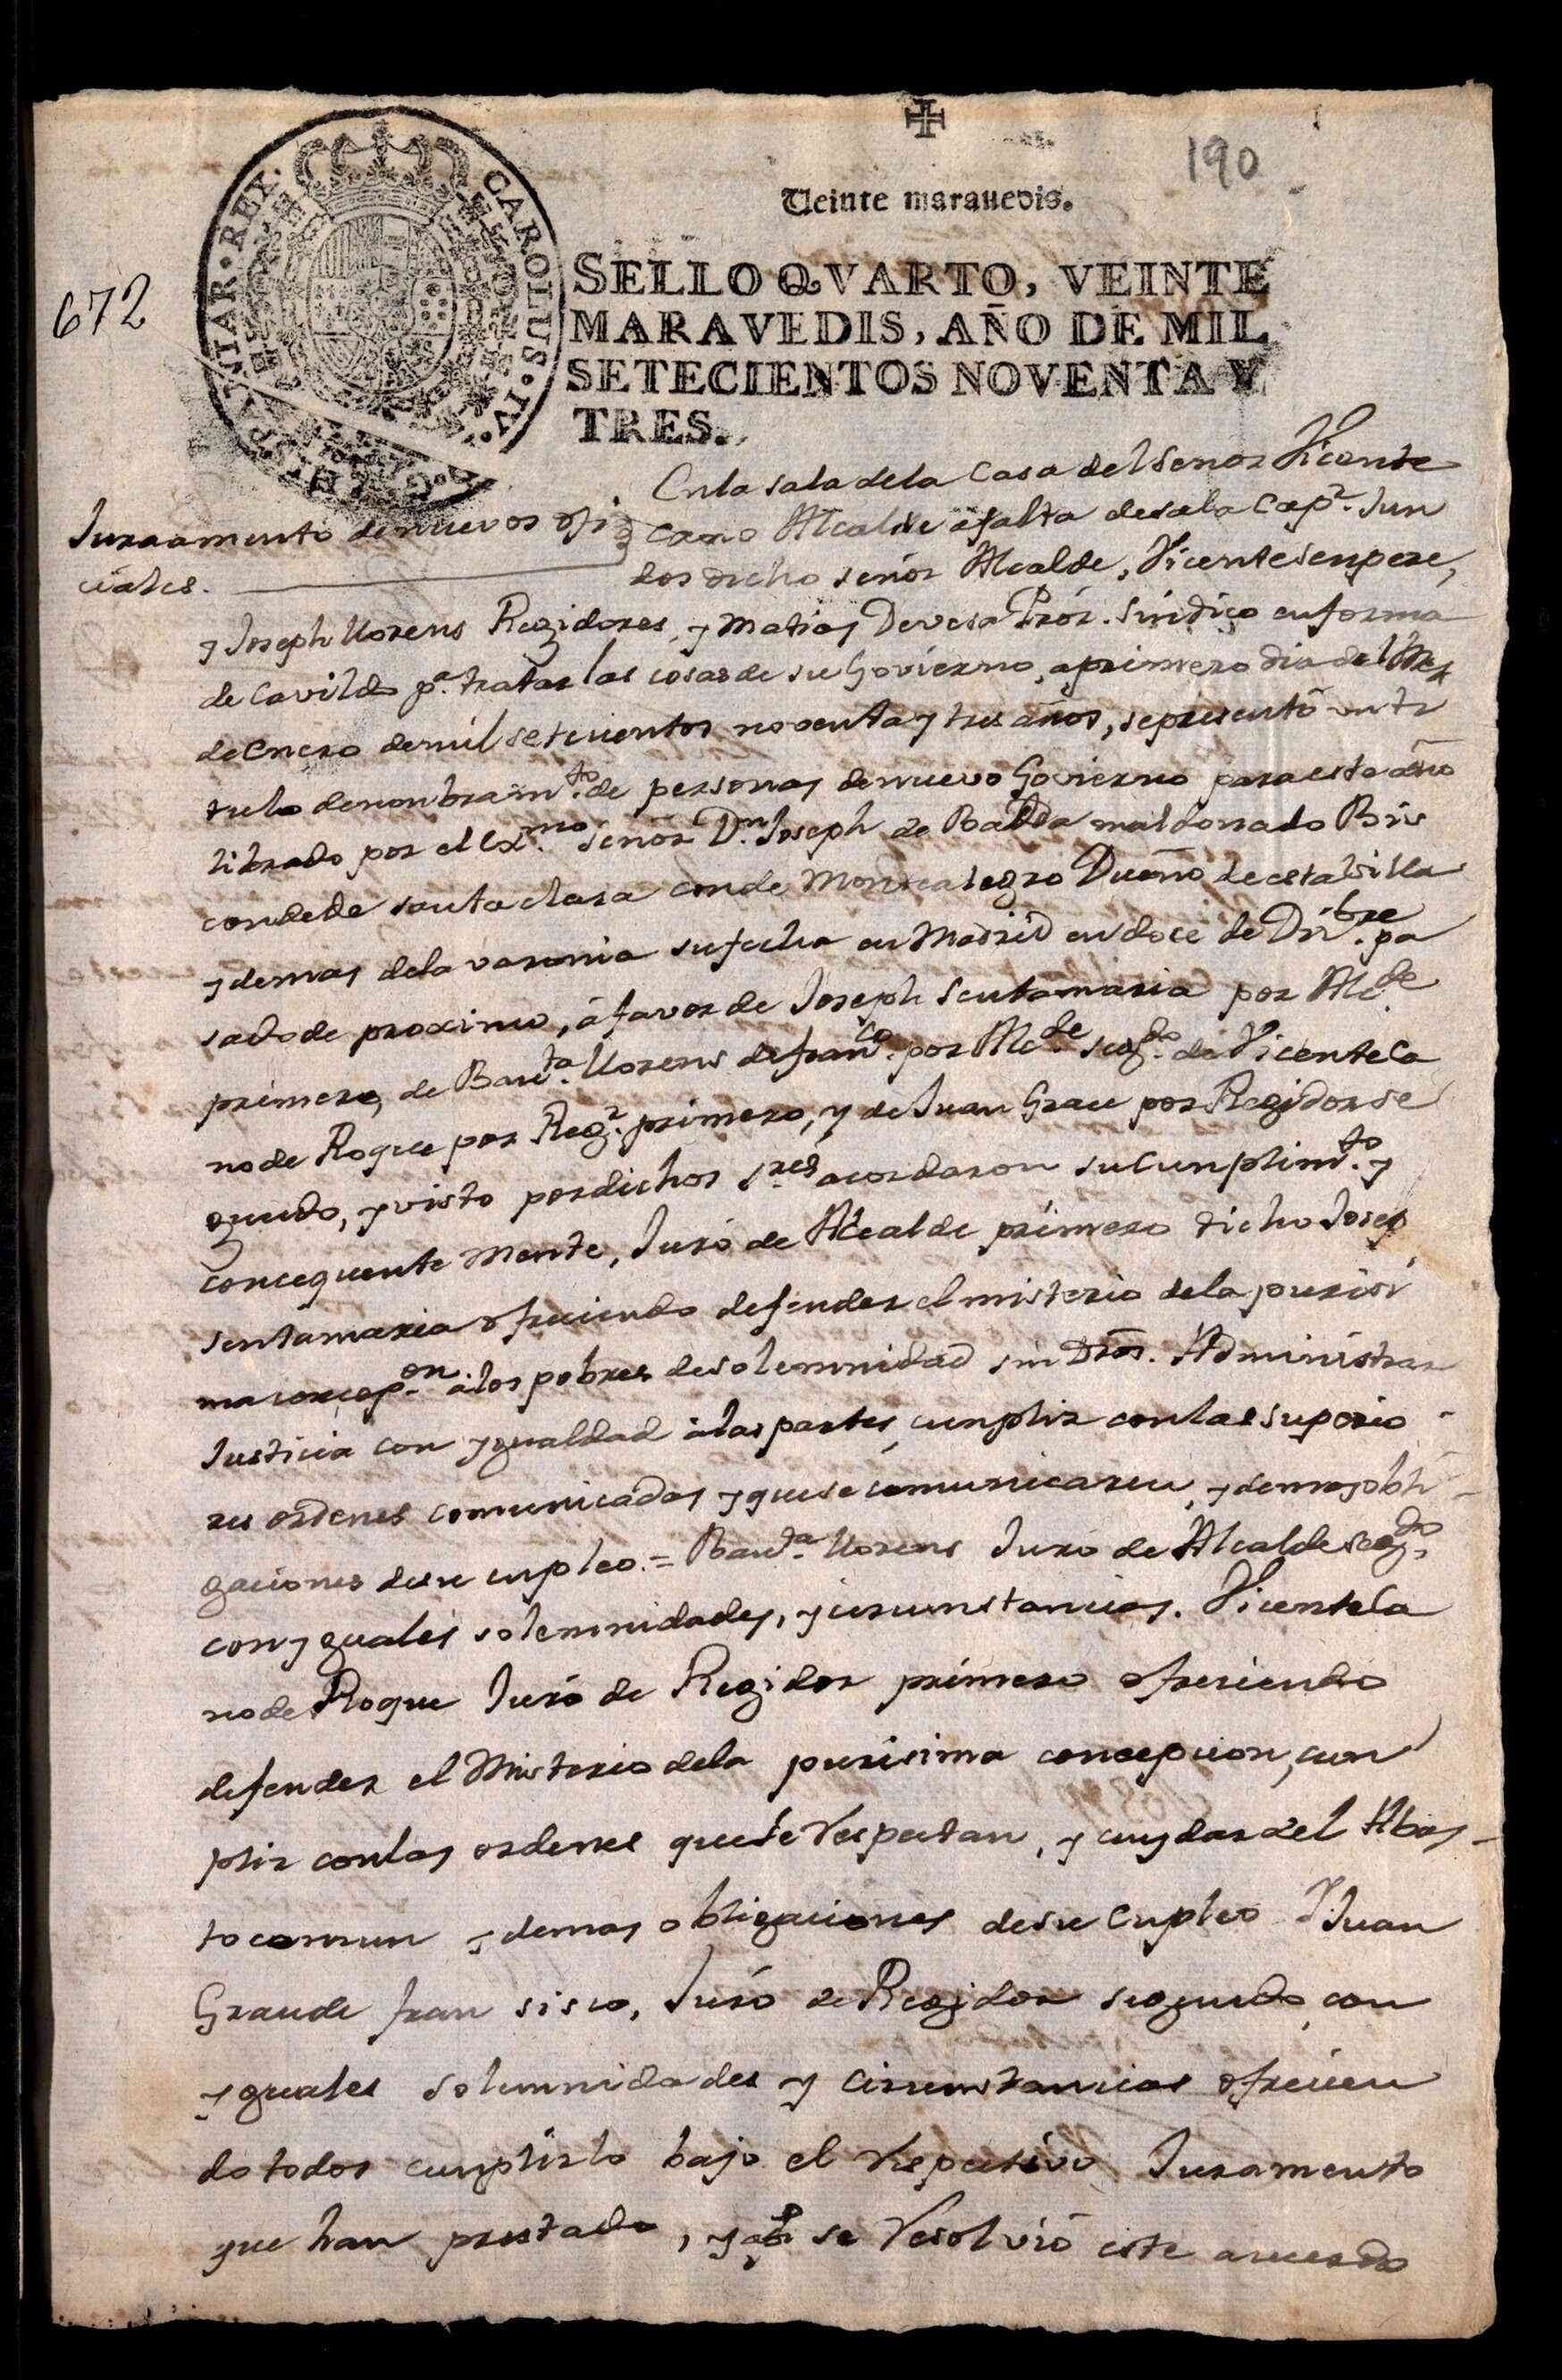 190
Veinte marauedis.
672
CAROLUS · IV · D · G · HISPANIAR · REX ·
SELLO QVARTO, VEINTE
MARAVEDIS, AÑO DE MIL
SETECIENTOS NOVENTA Y
TRES.
Juraamento de nuevos ofi
ciales.
En la sala dela Casa del Senor Vicente
Cano Alcalde á falta de sala Cap.r Jun
dos dicho señor Alcalde, Vicente senpere,
y Joseph Llorens Regidores, y Matias Devesa Prór. Sindico en forma
de Cavildo p.a tratar las cosas de su Govierno, a primero dia del Mes
de Enero de mil setecientos noventa y tres años, se presentó un ti
tulo de nonbram.to de personas de nuevo Govierno para este año
librado por el Ex.mo Señor D.n Joseph de Badda maldonado
conde de santa clara conde Montealegro Dueño de esta villa
y demas dela varonia su fecha en Madrid en doce de Dz.bre pa
sado de proximo, á favor de Joseph Sentamaria por Alc.de
primero, de Baut.ta Llorens de fran.co por Alc.de seg.do de Vicente Ca
no de Roque por Reg.r primero, y de Juan Grau por Regidor se
gundo, y visto por dichos s.res acordaron su Cunplim.to y
concequente Mente, Juró de Alcalde primero dicho Josep
Sentamaria ofreciendo defender el misterio dela purisi
ma concep.on á los pobres de solemnidad sin Dros. Administrar
Justicia con ygualdad á las partes, cunplir con las superio
res ordenes comunicadas y que se comunicaren, y demas obli
gaciones de su enpleo. = Baut.a Llorens Juró de Alcalde seg.do
con yguales solemnidades, y circunstancias. Vicente Ca
no de Roque Juró de Regidor primero ofreciendo
defender el Misterio dela purisima concepcion, cun
plir con las ordenes que le respectan, y cuydar del Abas
to comun y demas obligaciones de su Enpleo Y Juan
Grau de fran sisco, Juró de Regidor segundo, con
yguales solemnidades y circunstancias ofrecien
do todos cunplirlo bajo el respectivo Juramento
que han prestado, y asi se resolvió este acuerdo